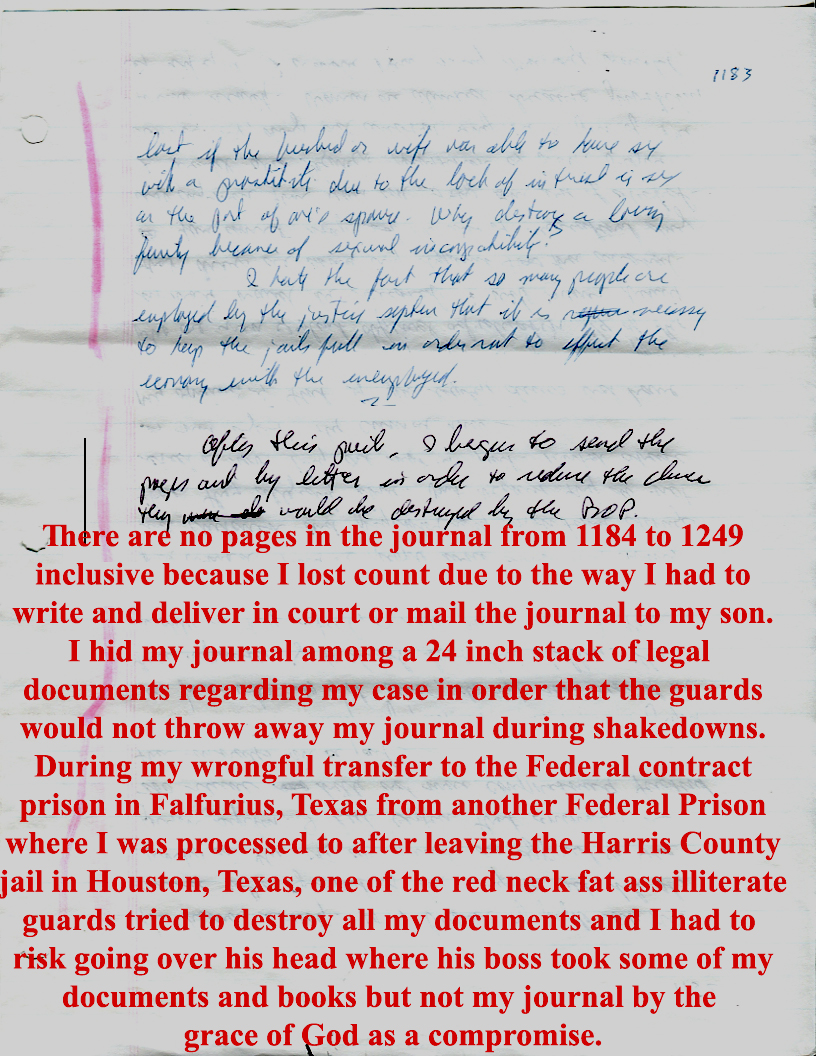 1183
lost if the husband or wife was able to have sex
with a prostitute due to the lack of interest in sex
on the part of one's spouse. Why destroy a loving
family because of sexual incompatibility?
I hate the fact that so many people are
employed by the justice system that it is necessary
to keep the jails full in order not to effect the
economy with the unemployed.
After this point, I began to send the
pages out by letter in order to reduce the chance
they would be destroyed by the BOP.
There are no pages in the journal from 1184 to 1249
inclusive because I lost count due to the way I had to
write and deliver in court or mail the journal to my son.
I hid my journal among a 24 inch stack of legal
documents regarding my case in order that the guards
would not throw away my journal during shakedowns.
During my wrongful transfer to the Federal contract
prison in Falfurius, Texas from another Federal Prison
where I was processed to after leaving the Harris County
jail in Houston, Texas, one of the red neck fat ass illiterate
guards tried to destroy all my documents and I had to
risk going over his head where his boss took some of my
documents and books but not my journal by the
grace of God as a compromise.